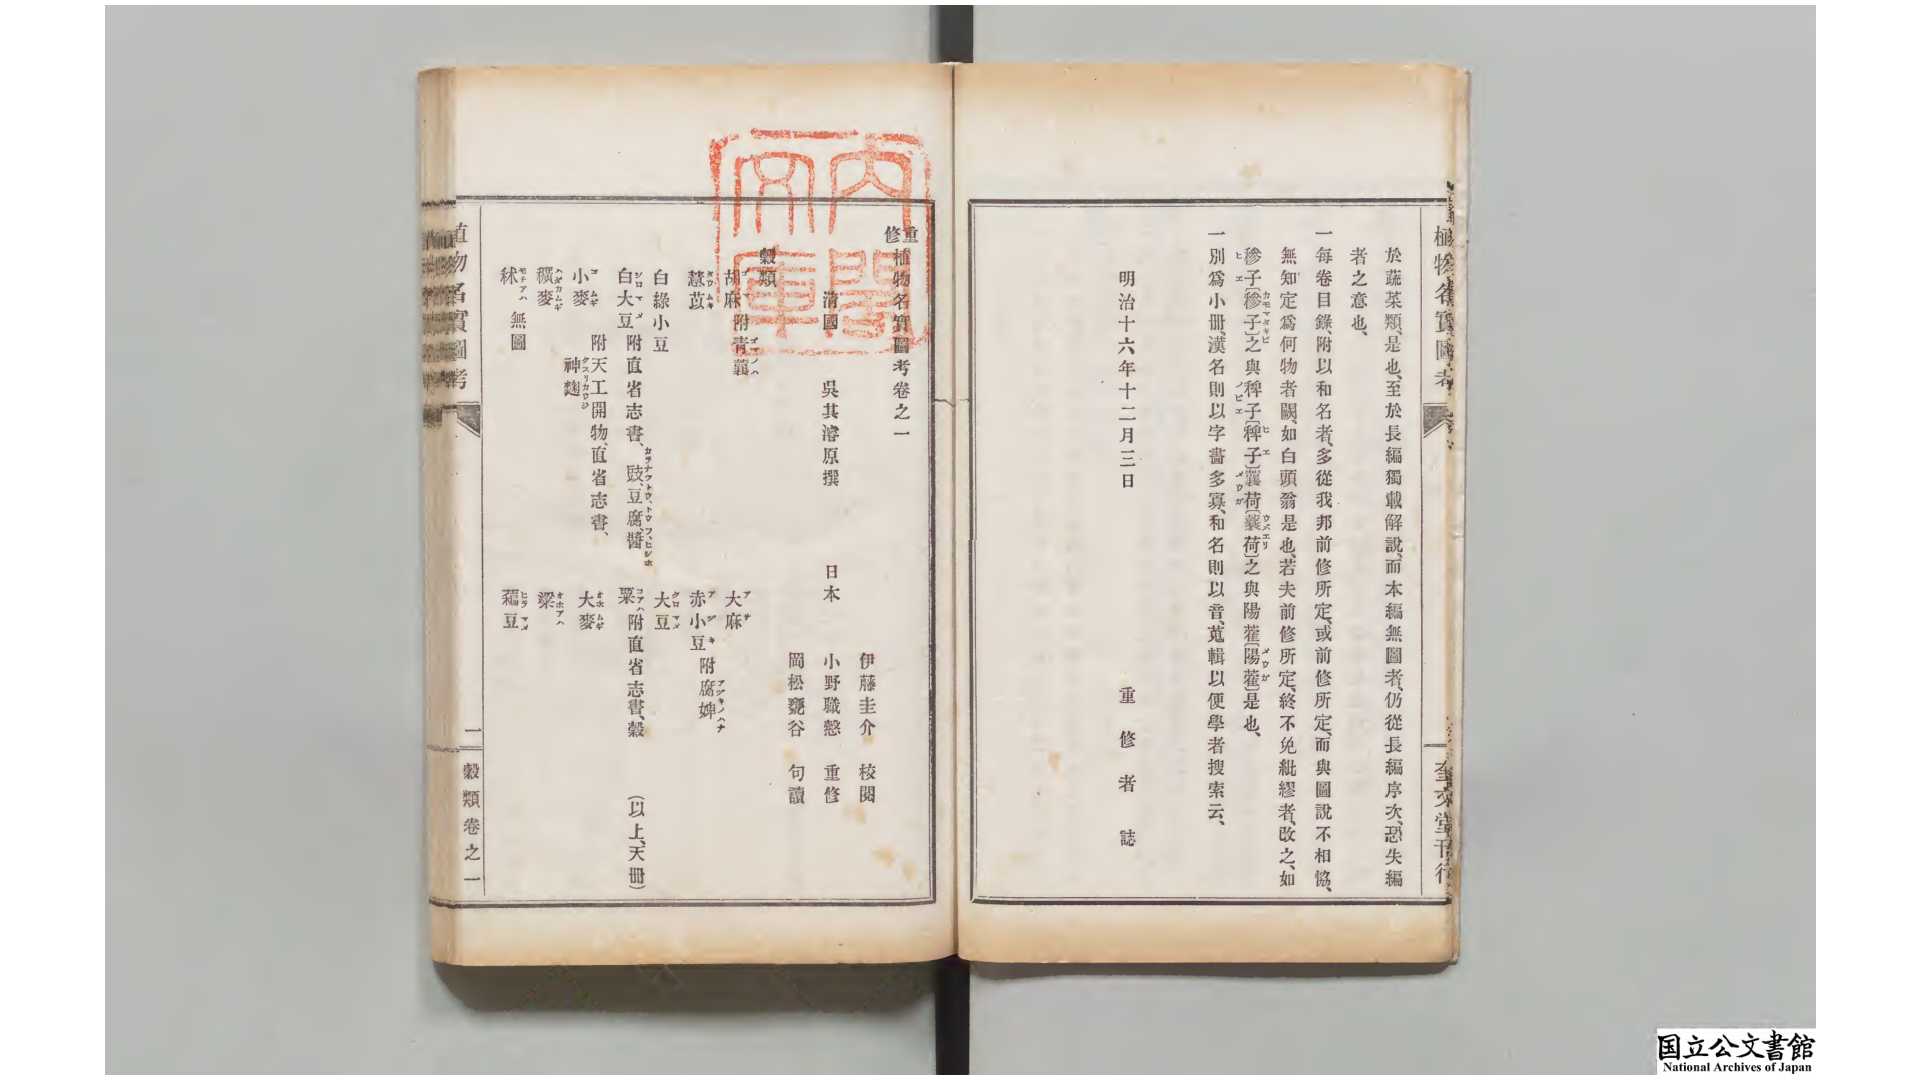 植物名實圖考
奎文堂刊行
於蔬菜類、是也、至於長編獨載解說、而本編無圖者、仍從長編序次、恐失編
者之意也、
一每卷目錄、附以和名者、多從我邦前修所定、或前修所定、而與圖說不相恊、
無知定爲何物者闕、如白頭翁是也、若夫前修所定、終不免紕繆者、改之、如
穇子〔穇子〕之與稗子〔稗子〕蘘荷〔蘘荷〕之與陽藿〔陽藿〕是也、
一別爲小冊、漢名則以字畫多寡、和名則以音、蒐輯以便學者搜索云、
明治十六年十二月三日
重修者誌
內閣文庫
重修植物名實圖考卷之一
伊藤圭介 校閱
清國 吳其濬原撰 日本 小野職愨 重修
岡松甕谷 句讀
穀類
胡麻 附青蘘 大麻
薏苡 赤小豆 附腐婢
白綠小豆 大豆
白大豆 附直省志書、豉、豆腐、醬 粟 附直省志書、穀 (以上、天冊)
小麥 附天工開物、直省志書、神麴 大麥
穬麥 粱
秫 無圖 稨豆
植物名實圖考
一
穀類卷之一
国立公文書館
National Archives of Japan